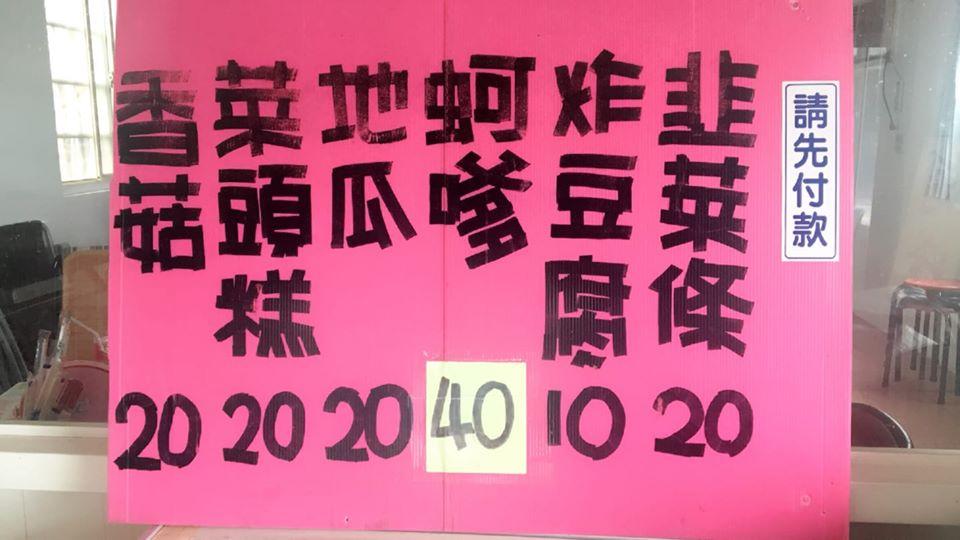 請先付款
韭菜條 20
炸豆腐 10
蚵嗲 40
地瓜 20
菜頭糕 20
香菇 20